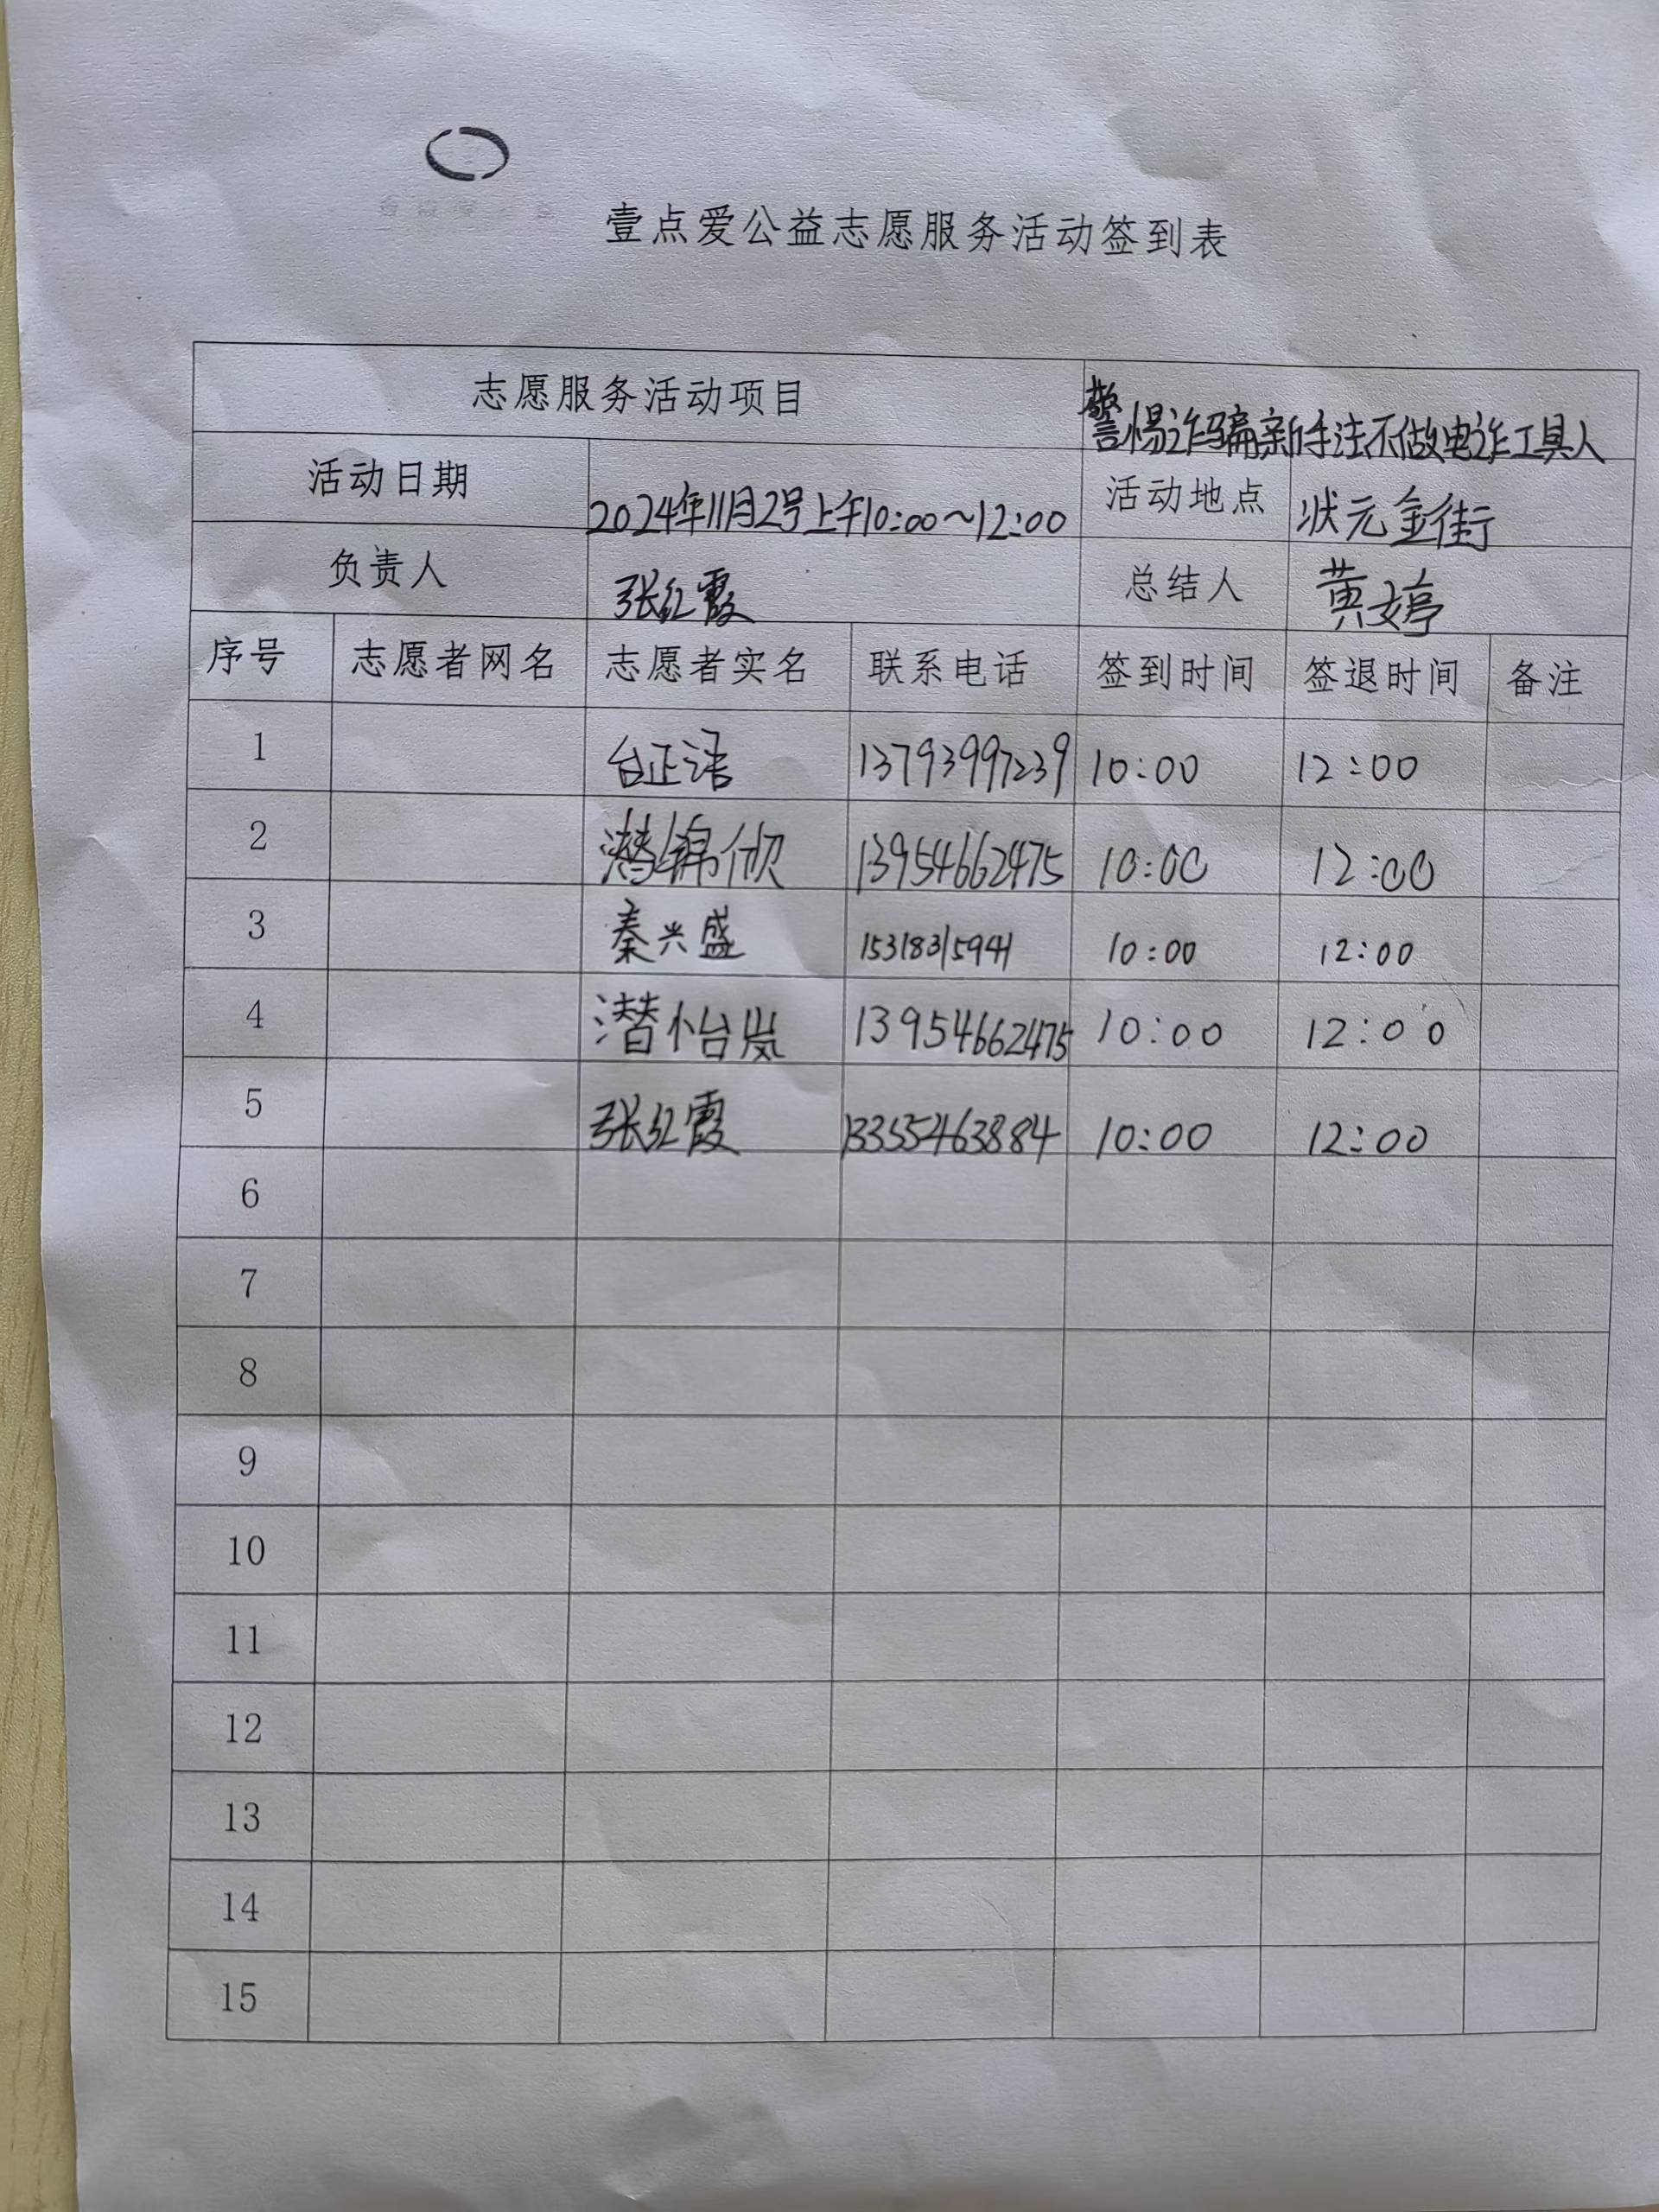 壹点爱公益志愿服务活动签到表
志愿服务活动项目 警惕诈骗新手法不做电诈工具人
活动日期 2024年11月2号上午10:00~12:00 活动地点 状元金街
负责人 张红霞 总结人 黄婷
序号 志愿者网名 志愿者实名 联系电话 签到时间 签退时间 备注
1 台正语 13793997239 10:00 12:00
2 潜锦欣 13954662475 10:00 12:00
3 秦兴盛 15318315941 10:00 12:00
4 潜怡岚 13954662475 10:00 12:00
5 张红霞 13355463884 10:00 12:00
6
7
8
9
10
11
12
13
14
15